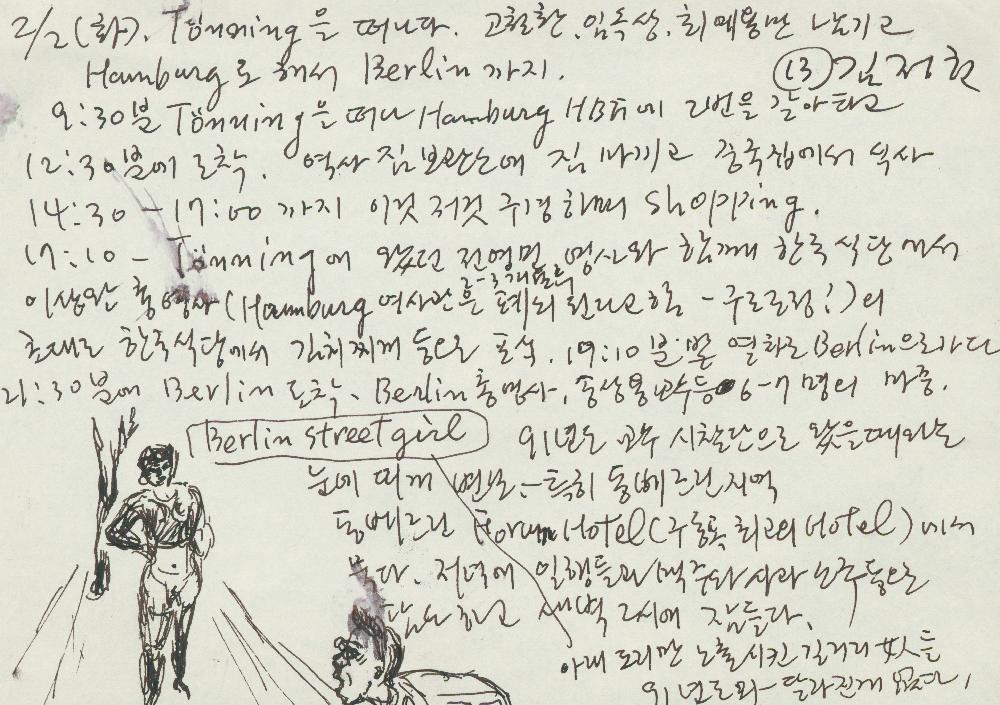 2/2(화). Tönning을 떠나다. 고철환, 임독상, 최 남기고
Hamburg로 해서 Berlin까지.
⑬ 김정헌
9:30분 Tönning을 떠나 Hamburg HBF에 2번을 갈아타고
12:30분에 도착. 역사 짐보관소에 짐 맡기고 중국집에서 식사
14:30 - 17:00까지 이것저것 구경하며 Shopping.
17:10 - Tönning에 왔던 전영민 영사와 함께 한국식당에서
2-3개월 후
이상완 총영사(Hamburg 영사관은 폐쇄된다고 함 - 구조조정!)의
초대로 한국식당에서 김치찌개 등으로 포식. 19:10분발 열차로 Berlin으로 가다
21:30분에 Berlin 도착. Berlin 총영사, 교수등 6-7명의 마중.
Berlin street girl
91년도 교수 시찰단으로 왔을때와는
눈에 띄게 변모 - 특히 동베르린 지역
동베르린 Forum Hotel(구동독 최고의 Hotel)에서
묵다. 저녁에 일행들과 맥주와 사과 등으로
담소하고 새벽 2시에 잠들다.
아래도리만 노출시킨 길거리 女人들
91년도와 달라진게 없다.